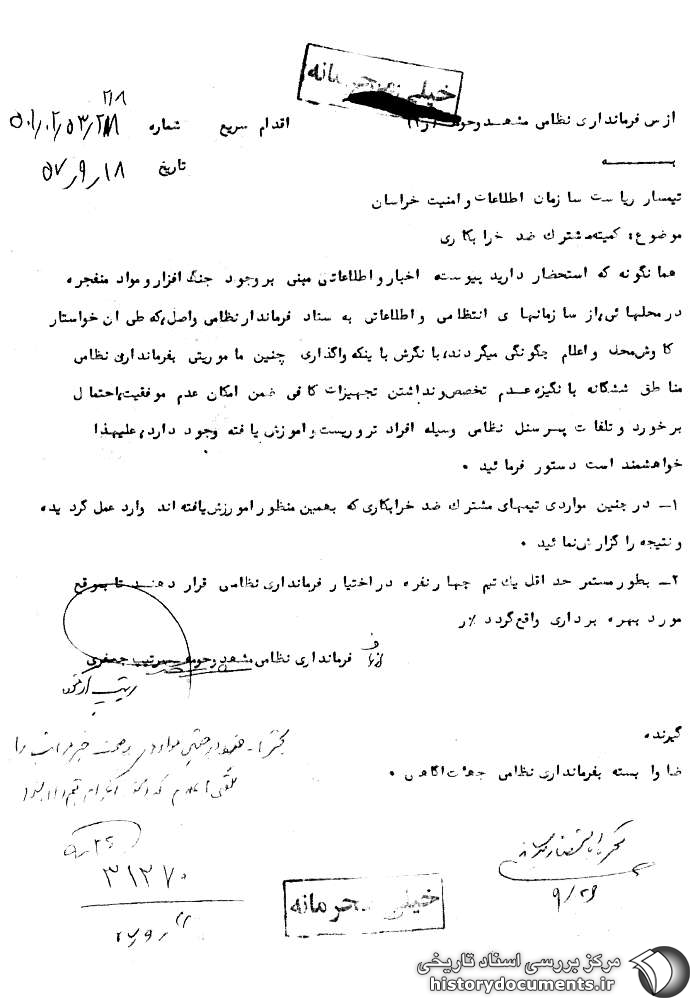 خیلی محرمانه
۲۱۸
از س فرمانداری نظامی مشهد و حومه اقدام سریع شماره ۵۰۱٫۰۲٫۵۳٫
بـــه تاریخ ۱۸٫۹٫۵۷
تیمسار ریاست سازمان اطلاعات و امنیت خراسان
موضوع: کمیته مشترک ضد خرابکاری
همانگونه که استحضار دارید پیوسته اخبار و اطلاعاتی مبنی بر وجود جنگ افزار و مواد منفجره
در محلهائی از سازمانهای انتظامی و اطلاعاتی به ستاد فرماندار نظامی واصل، که طی آن خواستار
کاوش محل و اعلام چگونگی میگردند، با نگرش باینکه واگذاری چنین ماموریتی بفرمانداری نظامی
مناطق ششگانه بانگیزه عدم تخصص و نداشتن تجهیزات کافی ضمن امکان عدم موفقیت، احتمال
برخورد و تلفات پرسنل نظامی وسیله افراد تروریست و اموزش یافته وجود دارد، علیهذا
خواهشمند است دستور فرمائید .
۱ـ در چنین مواردی تیمهای مشترک ضد خرابکاری که بهمین منظور اموزش یافته اند وارد عمل گردیده
و نتیجه را گزارش نمائید .
۲ـ بطور مستمر حداقل یک تیم چهار نفره در اختیار فرمانداری نظامی قرار دهند تا بموقع
مورد بهره برداری واقع گردد ٪ر
از ف فرمانداری نظامی مشهد و حومه سرتیپ جعفری
سرتیپ
گیرنده
ضا وابسته بفرمانداری نظامی جهت آگاهی .
در چنین مواردی صحت خبر مراتب را
تلفنی اعلام
۹٫۲۶
۹/۲۶
۳۱۲۷۰
خیلی محرمانه
مرکز بررسی اسناد تاریخی
historydocuments.ir